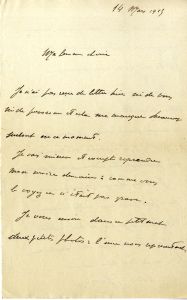 14 Mars 1915
Ma bien chère
Je n'ai pas reçu de lettre hier ni de vous
ni de personne et cela me manque beaucoup
surtout en ce moment.
Je vais mieux et compte reprendre
mon service demain : comme vous
le voyez ce n'était pas grave.
Je vous envoie dans ce petit mot
deux petites photos : l'une vous représentant